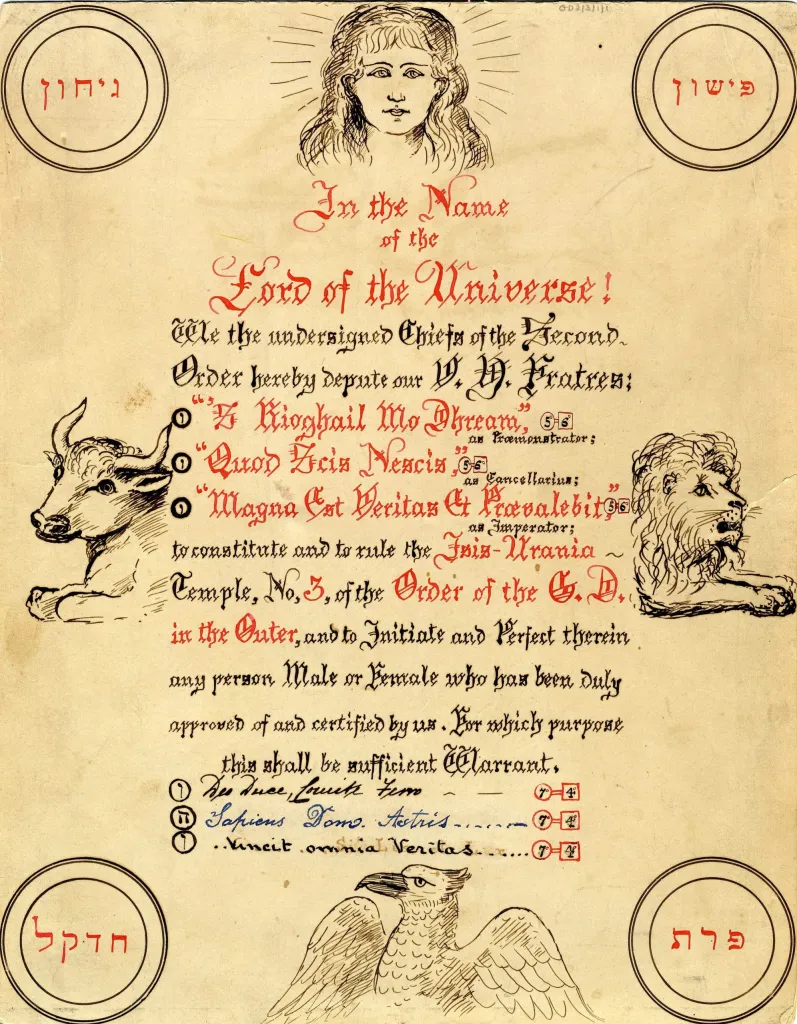 גיחון
פישון
In the Name
of the
Lord of the Universe!
We the undersigned Chiefs of the Second
Order hereby depute our V. H. Fratres:
"'S Rioghail Mo Dhream," 5=6
as Præmonstrator;
"Quod Scis Nescis," 5=6
as Cancellarius;
"Magna Est Veritas Et Prævalebit," 5=6
as Imperator;
to constitute and to rule the Isis-Urania ~
Temple, No, 3, of the Order of the G. D.
in the Outer, and to Initiate and Perfect therein
any person Male or Female who has been duly
approved of and certified by us. For which purpose
this shall be sufficient Warrant.
Deo Duce, Comite Ferro ~ — 7=4
ה Sapiens Dom. Astris........ 7=4
..Vincit omnia Veritas....... 7=4
חדקל
פרת